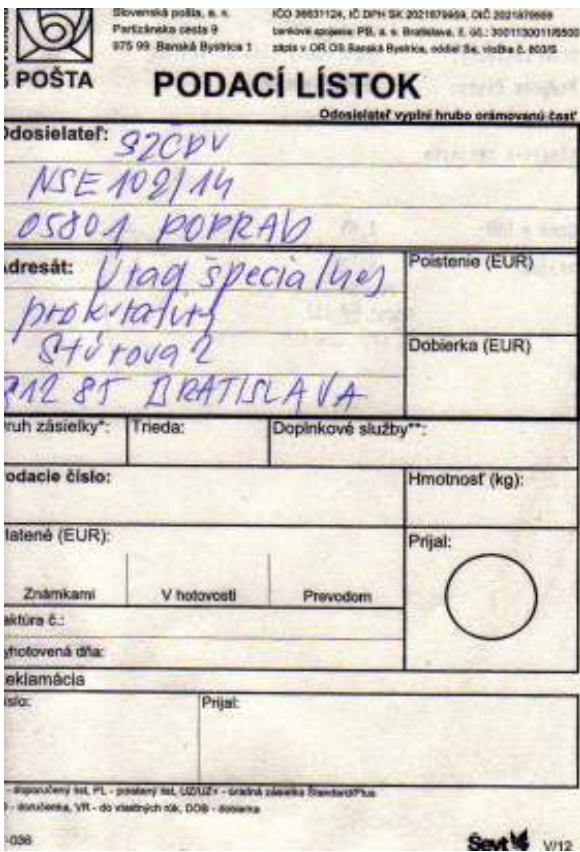 Slovenská pošta, a. s.
Partizánska cesta 9
975 99 Banská Bystrica 1
IČO 36631124, IČ DPH SK 2021879959, DIČ 2021879959
bankové spojenie: PB, a. s. Bratislava, č. úč.: 3001130011/6500
zápis v OR OS Banská Bystrica, oddiel Sa, vložka č. 803/S
POŠTA
PODACÍ LÍSTOK
Odosielateľ vyplní hrubo orámovanú časť
Odosielateľ: SZČPV
NSE 102/14
05801 POPRAD
Adresát: Úrad špeciálnej
prokuratúry
Štúrova 2
812 85 BRATISLAVA
Poistenie (EUR)
Dobierka (EUR)
ruh zásielky*:
Trieda:
Doplnkové služby**:
odacie číslo:
Hmotnosť (kg):
latené (EUR):
Prijal:
Známkami
V hotovosti
Prevodom
aktúra č.:
yhotovená dňa:
eklamácia
íslo:
Prijal:
- doporučený list, PL - poistený list, ÚZ/ÚZ+ - úradná zásielka Štandard/Plus
- doručenka, VR - do vlastných rúk, DOB - dobierka
-036
Ševt
V/12